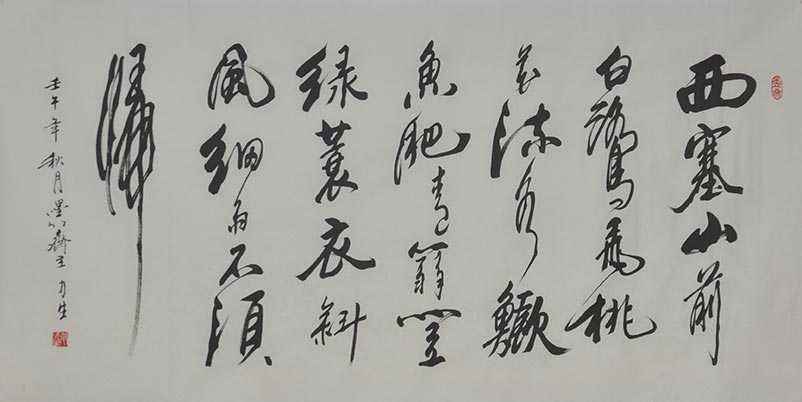 西塞山前
白鷺飛桃
花流水鱖
魚肥青箬笠
綠蓑衣斜
風細雨不須
歸
壬午年秋月墨齋主力生